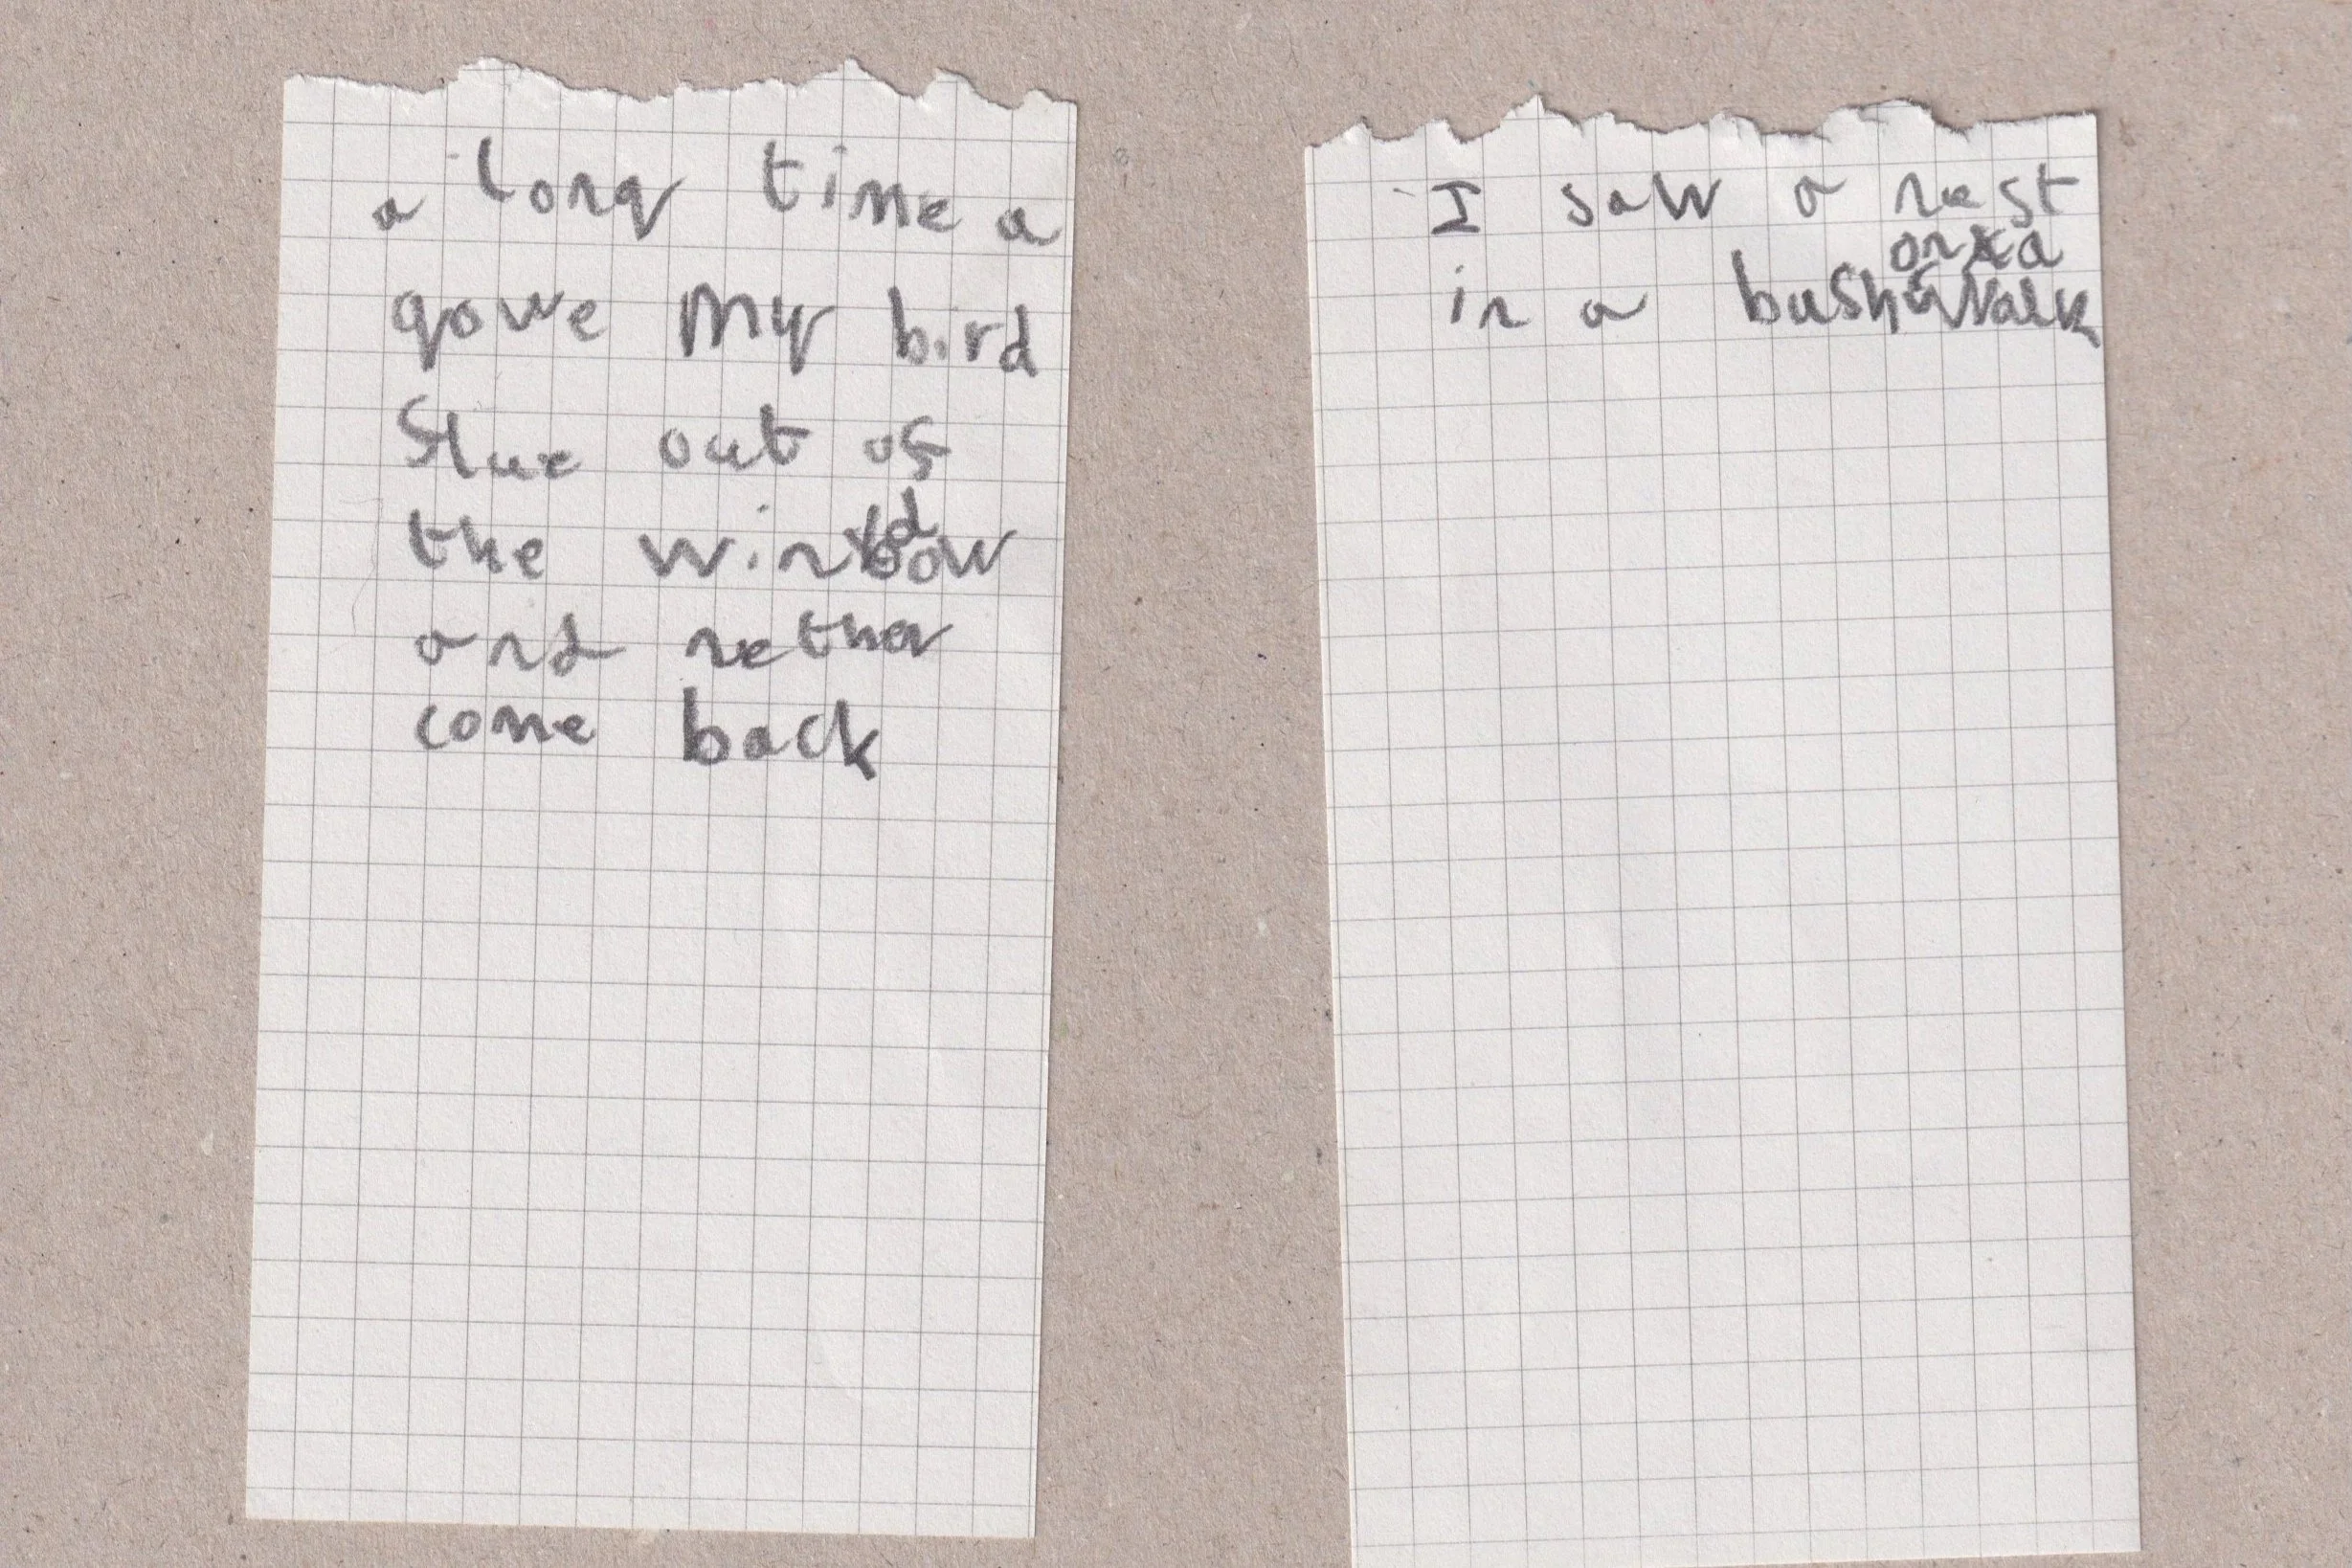 a long time a
gowe my bird
flue out of
the window
and nether
come back
I saw a nest
in a bush on a walk